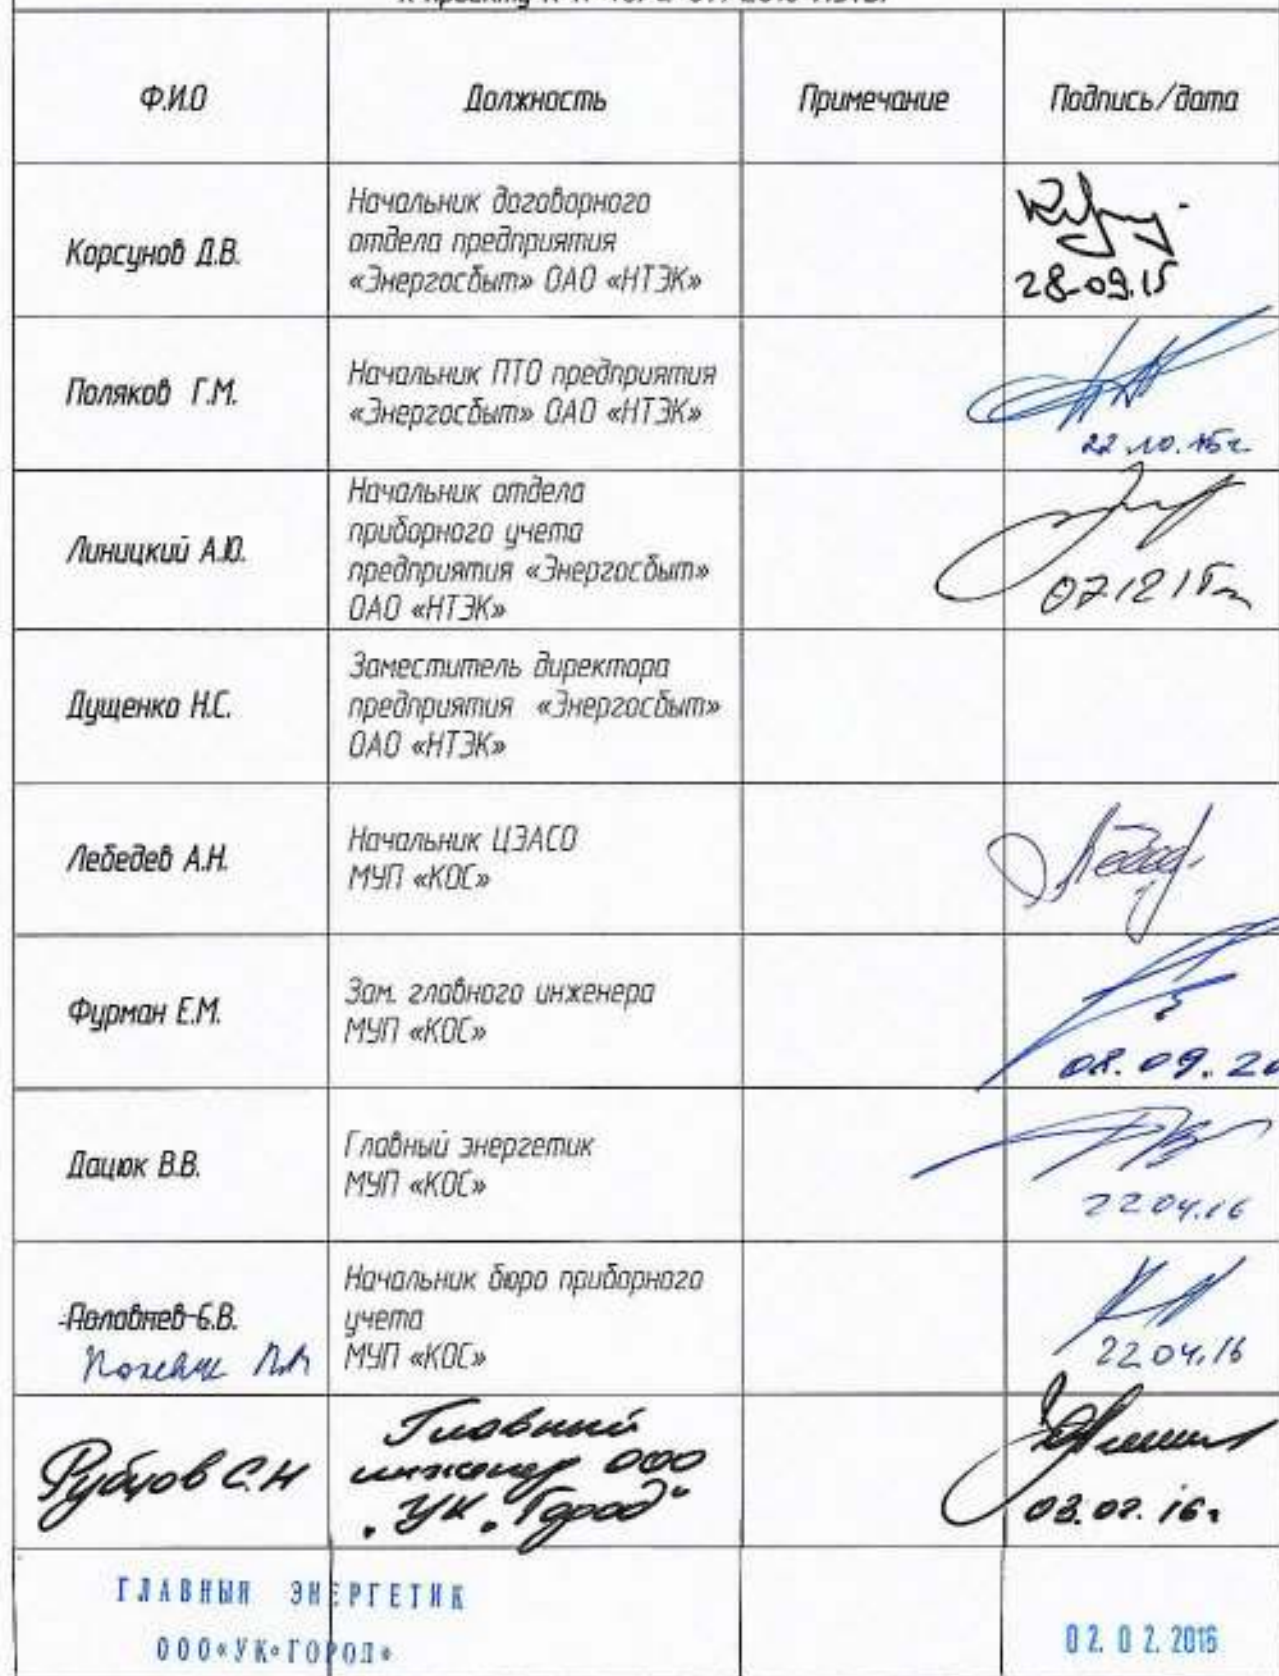 к проекту
Ф.И.О Должность Примечание Подпись/дата
Корсунов Д.В.
Начальник договорного
отдела предприятия
«Энергосбыт» ОАО «НТЭК»
28.09.15
Поляков Г.М.
Начальник ПТО предприятия
«Энергосбыт» ОАО «НТЭК»
22.10.15г.
Линицкий А.Ю.
Начальник отдела
приборного учета
предприятия «Энергосбыт»
ОАО «НТЭК»
07.12 15г
Дущенко Н.С.
Заместитель директора
предприятия «Энергосбыт»
ОАО «НТЭК»
Лебедев А.Н.
Начальник ЦЭАСО
МУП «КОС»
Фурман Е.М.
Зам. главного инженера
МУП «КОС»
08.09.20
Дацюк В.В.
Главный энергетик
МУП «КОС»
22 04.16
Половнев С.В.
Начальник бюро приборного
учета
МУП «КОС»
22 04.16
Рубцов С.Н
Главный
инженер ООО
"УК "Город"
03.02.16г
ГЛАВНЫЙ ЭНЕРГЕТИК
ООО«УК«ГОРОД»
02. 02. 2016